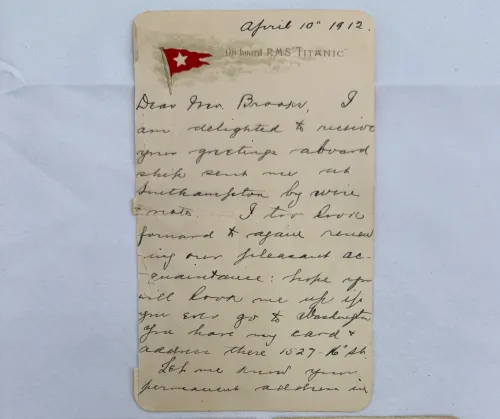 April 10" 1912.
On board R.M.S. "TITANIC"
Dear Mrs. Brooks, I
am delighted to receive
your greetings aboard
ship sent me at
Southampton by wire
& note. I too look
forward to again renew
-ing our pleasant ac-
quaintance: hope you
will look me up if
you ever go to Washington
You have my card &
address there 1527-16" St.
Let me know your
permanent address in